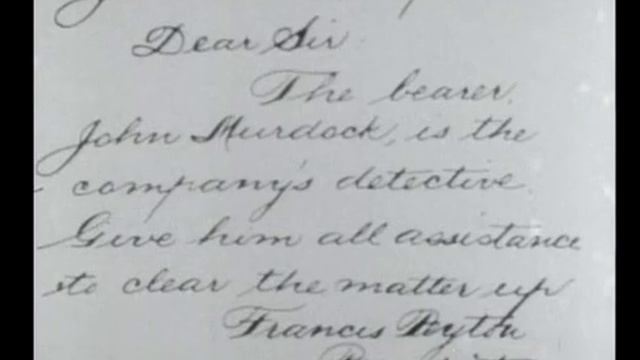 Dear Sir
The bearer,
John Murdock, is the
company's detective.
Give him all assistance
to clear the matter up
Francis Peyton